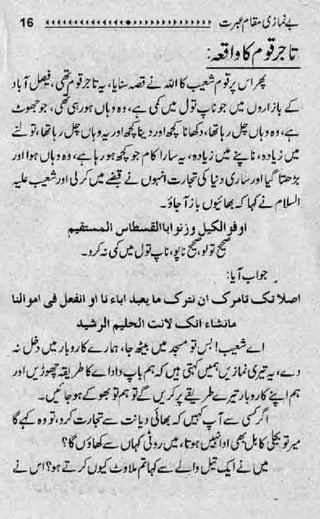 بے نمازی مقام عبرت 16
تاجر قوم کا واقعہ:
پھر اس پر قوم شعیب کا اللہ نے قصہ سنایا، یہ تاجر قوم تھی، فیصل آباد
کے بازاروں میں جو ناپ تول میں کمی ہے، وہ وہاں ہو رہی تھی، جو جھوٹ
ہے، وہ وہاں چل رہا تھا، دکھانا کچھ اور دینا کچھ اور یہ وہاں چل رہا تھا، تولنے
میں زیادہ، ناپنے میں زیادہ، یہ سارا کام جو کچھ ہو رہا ہے، وہ وہاں ہوا اور
بڑھتا گیا اور ساری دنیا کی تجارت انہوں نے قبضے میں کر لی اور شعیب علیہ
السلام نے کہا کہ بھائیوں باز آجاؤ۔
اوفوا لکیل وزنوا باالقسطاس المستقیم
صحیح تولو، صحیح ناپو، ناپ تول میں کمی نہ کرو۔
جواب آیا:
اصلا تک تامرک ان نترک ما یعبد اباء نا او انفعل فی اموالنا
مانشاء انک لانت الحلیم الرشید
اے شعیب! بس تو مسجد میں بیٹھ جا، ہمارے کاروبار میں دخل نہ
دے، یہ تیری نمازیں ہمیں کہتی ہیں کہ ہم باپ دادا کے طریقے چھوڑیں اور
ہم اپنے کاروبار تیرے طریقے پر کریں گے تو ہم تو بھوکے ہو جائیں۔
اگر کسی سے آپ کہیں کہ بھائی دیانت سے تجارت کرو، تو وہ کہے گا
میر تو بجلی کا بل بھی ادا نہیں ہوتا، میں روٹی کہاں سے کھاؤں گا؟
میں نے ایک تیل والے سے کہا تم ملاوٹ کیوں کرتے ہو؟ اس نے